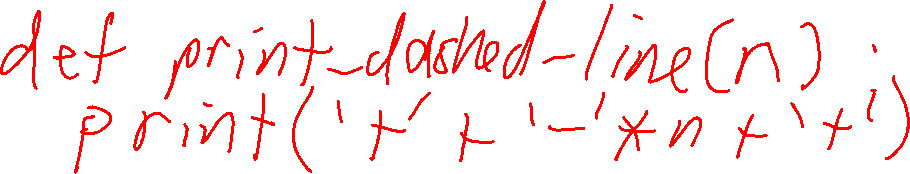 def print_dashed_line(n):
    print('+' + '-'*n + '+')